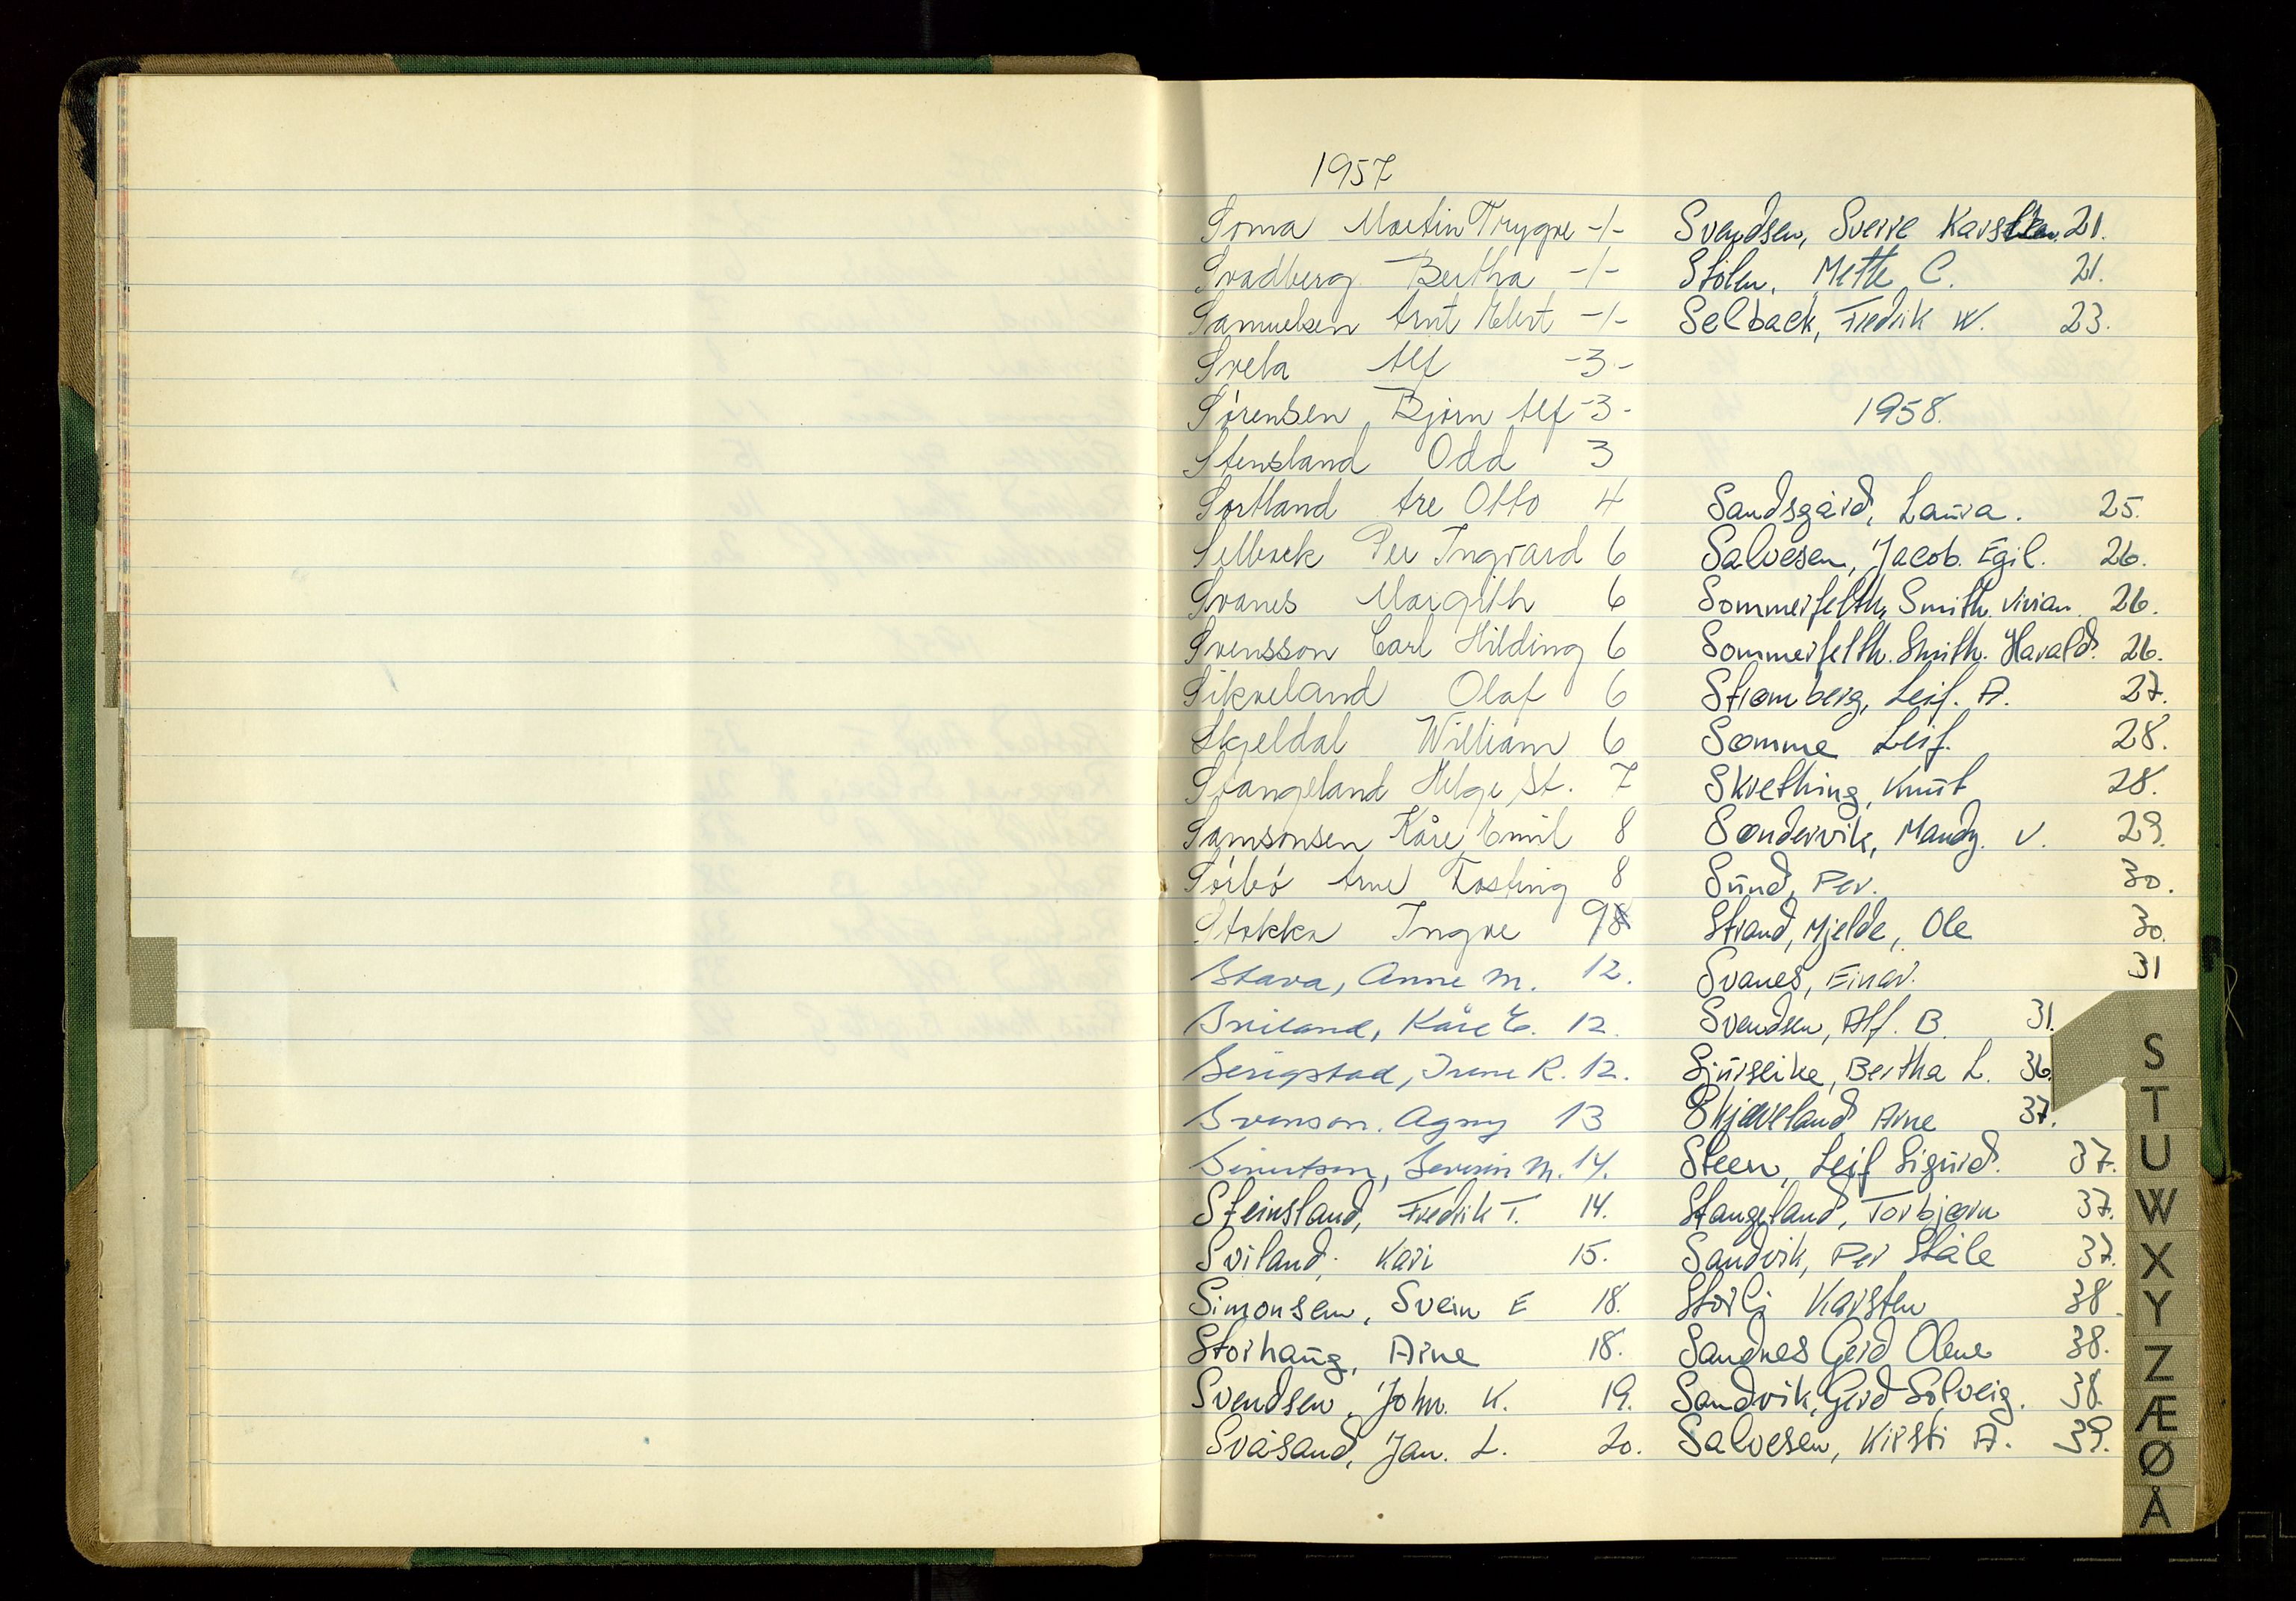 1957
Soma Martin Trygve -1-
Svadberg Bertha -1-
Samuelsen Arnt Elert -1-
Svela Alf -3-
Sørensen Bjørn Alf -3-
Stensland Odd 3
Sortland Are Otto 4
Selback Per Ingvard 6
Svanes Margith 6
Svensson Carl Hilding 6
Sikveland Olaf 6
Skjeldal William 6
Stangeland Helge St. 7
Samsonsen Kåre Emil 8
Sørbø Arne Tosting 8
Stokka Ingve 98
Stava, Anne M. 12.
Sviland, Kåre E. 12.
Serigstad, Irene R. 12.
Svenson. Agny 13
Severin M. 14.
Steinsland, Fredrik T. 14.
Sviland, Kari 15.
Simonsen, Svein E 18.
Storhaug, Arne 18.
Svendsen, John. K. 19.
Svåsand, Jan. L. 20.
Svendsen, Sverre Karsten 21.
Stølen, Mette C. 21.
Selback, Fredrik W. 23.
1958.
Sandsgård, Laura. 25.
Salvesen, Jacob. Egil. 26.
Sommerfelth, Smith. Vivian. 26.
Sommerfelth. Smith. Harald. 26.
Strømberg, Leif. A. 27.
Sømme Leif. 28.
Skrething, Knut 28.
Søndervik, Mandy. V. 29.
Sund, Per. 30.
Strand, Mjelde, Ole 30.
Svanes, Einar. 31
Svendsen, Alf. B. 31.
Sjurseike, Bertha L. 36.
Skjæveland Arne 37.
Steen, Leif Sigurd. 37.
Stangeland, Torbjørn 37.
Sandvik, Per Ståle 37.
Storli Karsten 38.
Sandnes Gerd Olene 38.
Sandvik, Gerd Solveig. 38.
Salvesen, Kirsti A. 39.
S
T
U
W
X
Y
Z
Æ
Ø
Å